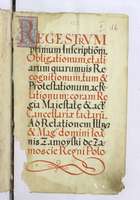 REGESTRVM
primum Inscriptiom
Obligationum, et ali
arum quarumuis Re
cognitionum, tum &
Protestationum, ac re
lationum: coram Re
gia Maiestate & act
Cancellariæ factaru.
Ad Relationem Illris
& Magci domini Ioa
nis Zamoyski de Za
moscie Regni Polo